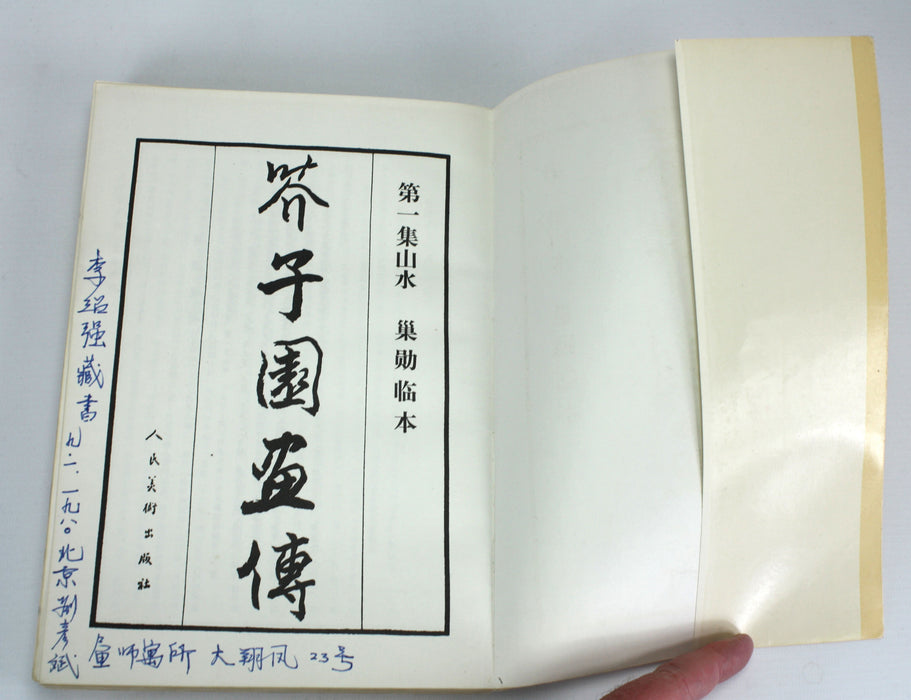 第一集山水 巢勋临本
芥子园画傳
人民美術出版社
李绍强藏书 九.一.一九八〇北京
师寓所 大翔凤23号